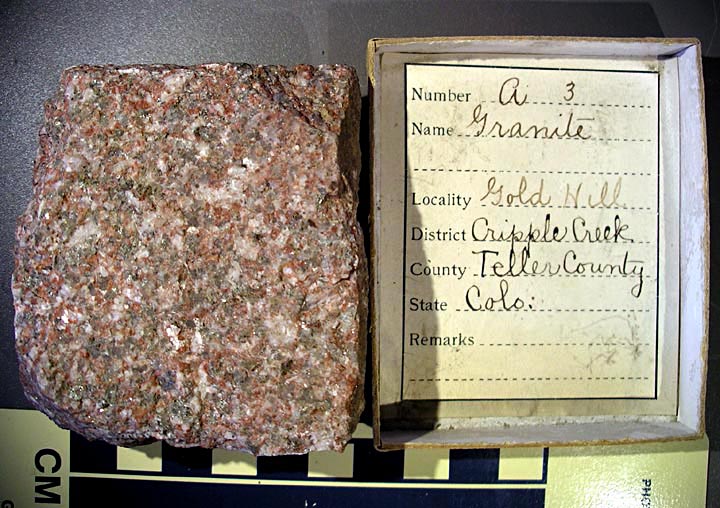 Number A 3
Name Granite
Locality Gold Hill
District Cripple Creek
County Teller County
State Colo.
Remarks
CM